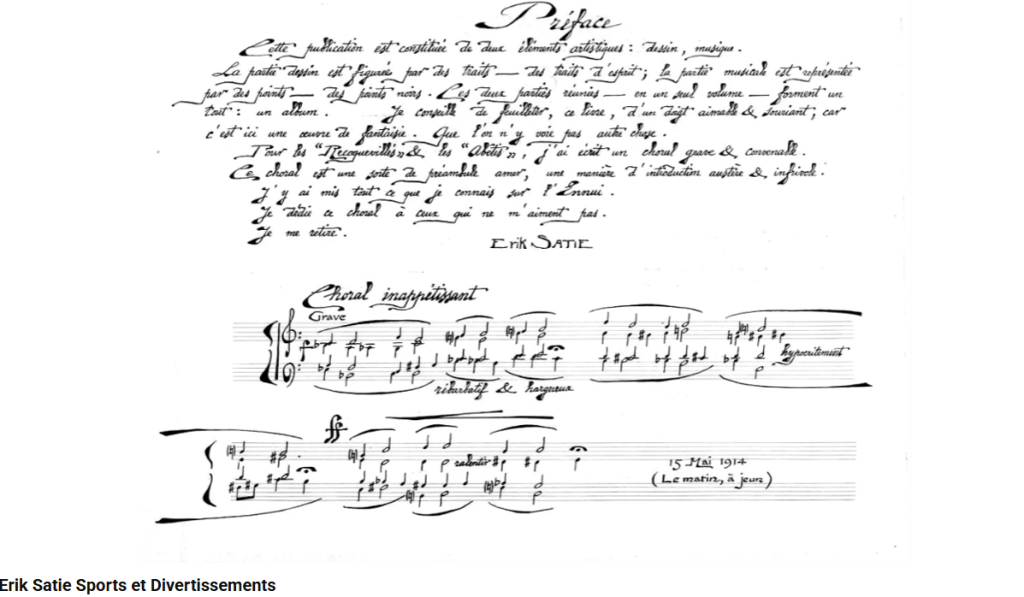 Préface
Cette publication est constituée de deux éléments artistiques : dessin, musique.
La partie dessin est figurée par des traits — des traits d'esprit ; la partie musicale est représentée
par des points — des points noirs. Ces deux parties réunies — en un seul volume — forment un
tout : un album. Je conseille de feuilleter, ce livre, d'un doigt aimable & souriant ; car
c'est ici une œuvre de fantaisie. Que l'on n'y voie pas autre chose.
Pour les "Recoquevillés" & les "Abêtis", j'ai écrit un choral grave & convenable.
Ce choral est une sorte de préambule amer, une manière d'introduction austère & infrivole.
J'y ai mis tout ce que je connais sur l'Ennui.
Je dédie ce choral à ceux qui ne m'aiment pas.
Je me retire.
ERIK SATIE
Choral inappétissant
Grave
f
hypocritement
rébarbatif & hargneux
ff
ralentir
15 Mai 1914
(Le matin, à jeun)
Erik Satie Sports et Divertissements